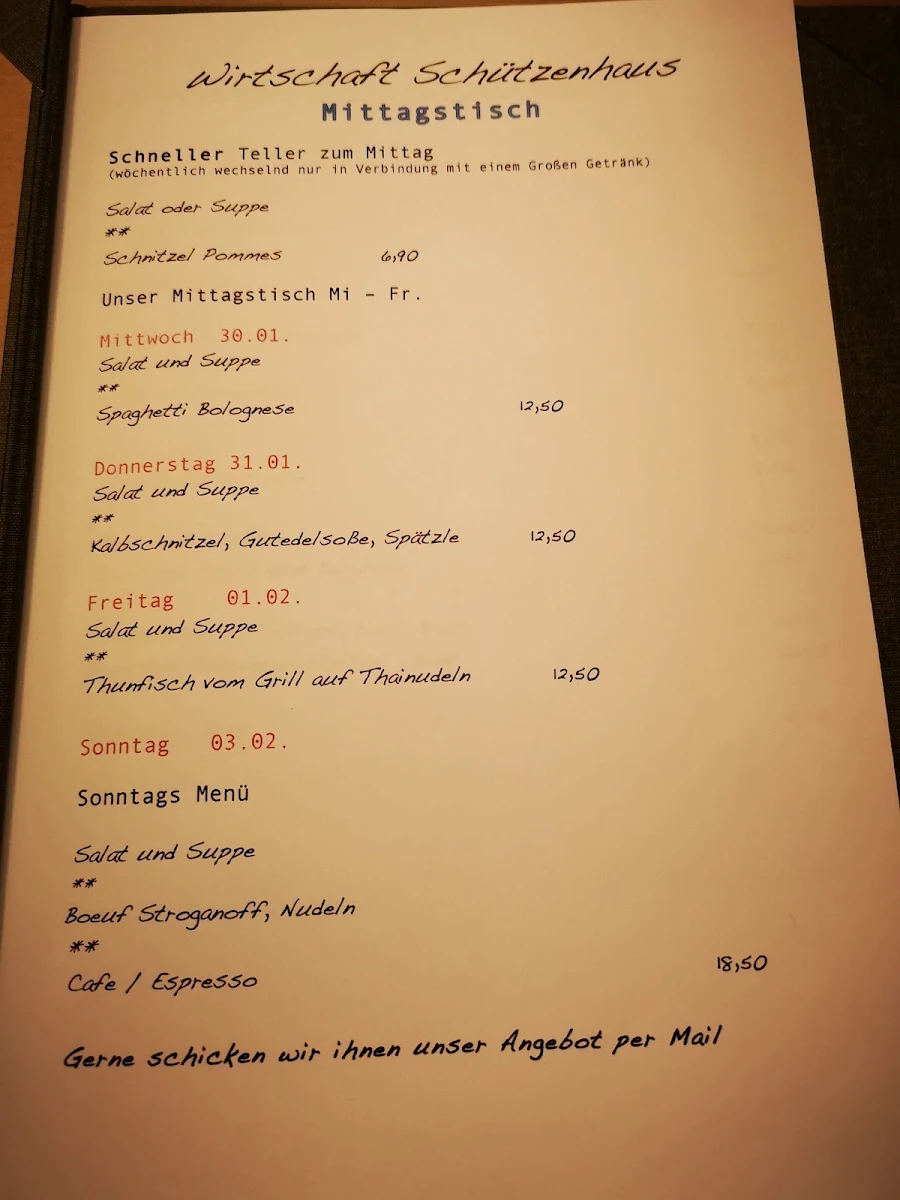 Wirtschaft Schützenhaus
Mittagstisch
Schneller Teller zum Mittag
(wöchentlich wechselnd nur in Verbindung mit einem Großen Getränk)
Salat oder Suppe
**
Schnitzel Pommes 6,90
Unser Mittagstisch Mi – Fr.
Mittwoch 30.01.
Salat und Suppe
**
Spaghetti Bolognese 12,50
Donnerstag 31.01.
Salat und Suppe
**
Kalbschnitzel, Gutedelsoße, Spätzle 12,50
Freitag 01.02.
Salat und Suppe
**
Thunfisch vom Grill auf Thainudeln 12,50
Sonntag 03.02.
Sonntags Menü
Salat und Suppe
**
Boeuf Stroganoff, Nudeln
**
Cafe / Espresso 18,50
Gerne schicken wir ihnen unser Angebot per Mail